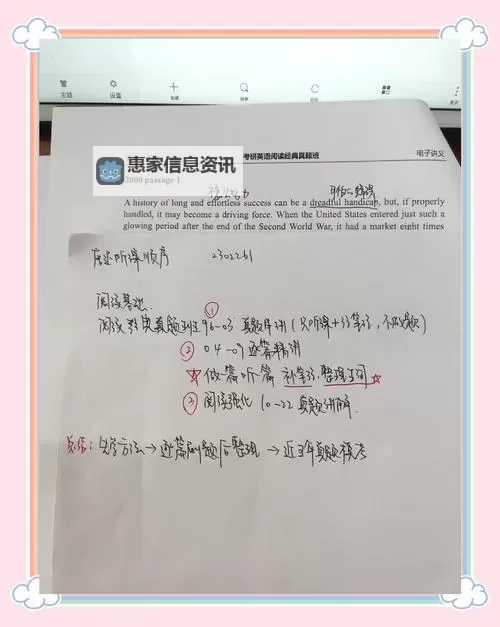 主题 设置
考研英语阅读经典真题班 电子讲义
惠家信息资讯
2000 passage 1
A history of long and effortless success can be a dreadful handicap, but, if properly
handled, it may become a driving force. When the United States entered just such a
glowing period after the end of the Second World War, it had a market eight times
唐迟听课顺序 2302261
阅读基础
①
阅读 真题 96-03 真题串讲（只听课+记笔记，不做题）
② 04-09 逐篇精讲
☆ 做一篇听一篇 补笔记，整理生词 ☆
③ 阅读强化 10-22 真题讲解
总结：先学方法→逐篇刷题后整理→近三年真题模考